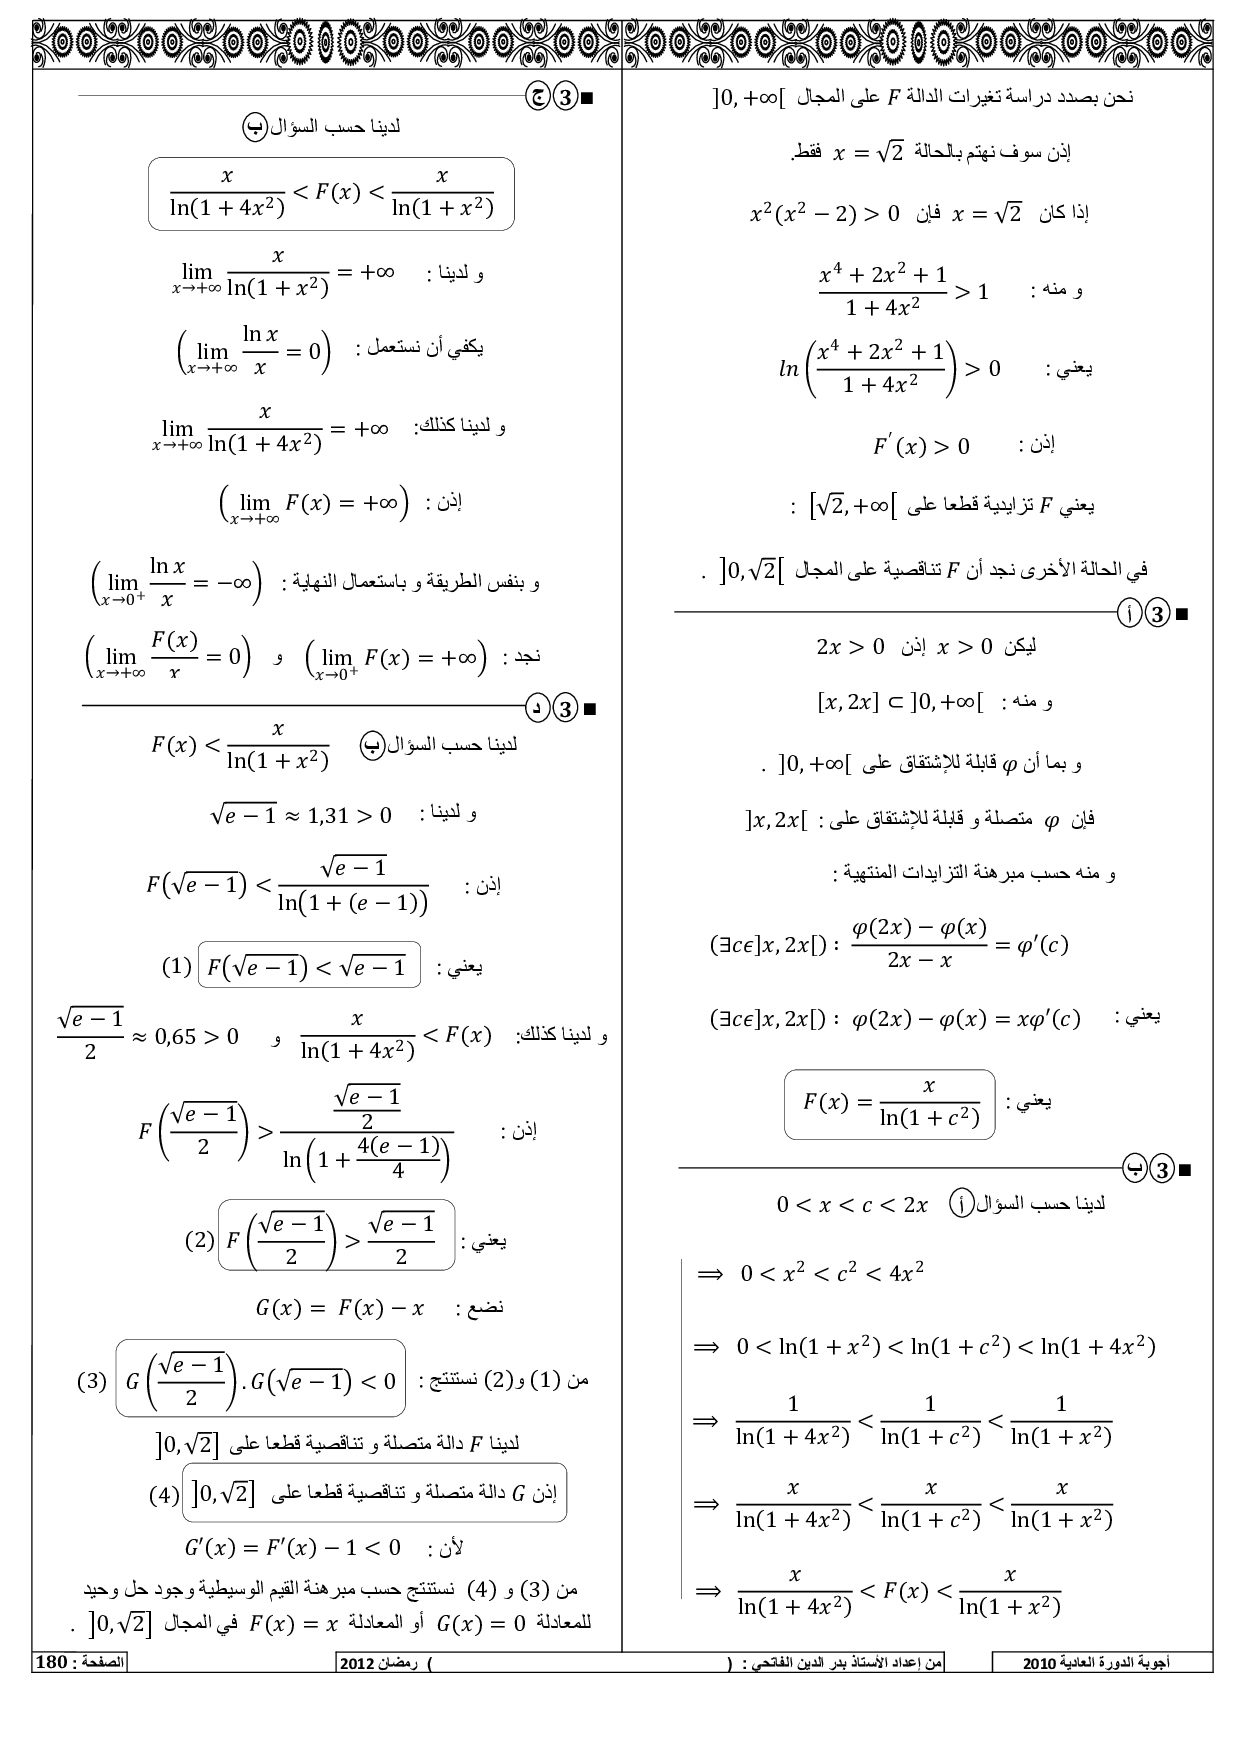 نحن بصدد دراسة تغيرات الدالة F على المجال ]0, +∞[
إذن سوف نهتم بالحالة x = √2 فقط.
إذا كان x = √2 فإن x²(x² − 2) > 0
و منه : (x⁴ + 2x² + 1)/(1 + 4x²) > 1
يعني : ln((x⁴ + 2x² + 1)/(1 + 4x²)) > 0
إذن : F′(x) > 0
يعني F تزايدية قطعا على [√2, +∞[ :
في الحالة الأخرى نجد أن F تناقصية على المجال ]0, √2[ .
■ 3 أ
ليكن x > 0 إذن 2x > 0
و منه : [x, 2x] ⊂ ]0, +∞[
و بما أن φ قابلة للإشتقاق على ]0, +∞[ .
فإن φ متصلة و قابلة للإشتقاق على : ]x, 2x[
و منه حسب مبرهنة التزايدات المنتهية :
(∃cϵ]x, 2x[) : (φ(2x) − φ(x))/(2x − x) = φ′(c)
يعني : (∃cϵ]x, 2x[) : φ(2x) − φ(x) = xφ′(c)
يعني : F(x) = x/ln(1 + c²)
■ 3 ب
لدينا حسب السؤال أ 0 < x < c < 2x
⟹ 0 < x² < c² < 4x²
⟹ 0 < ln(1 + x²) < ln(1 + c²) < ln(1 + 4x²)
⟹ 1/ln(1 + 4x²) < 1/ln(1 + c²) < 1/ln(1 + x²)
⟹ x/ln(1 + 4x²) < x/ln(1 + c²) < x/ln(1 + x²)
⟹ x/ln(1 + 4x²) < F(x) < x/ln(1 + x²)
■ 3 ج
لدينا حسب السؤال ب
x/ln(1 + 4x²) < F(x) < x/ln(1 + x²)
و لدينا : lim x→+∞ x/ln(1 + x²) = +∞
يكفي أن نستعمل : (lim x→+∞ ln x/x = 0)
و لدينا كذلك: lim x→+∞ x/ln(1 + 4x²) = +∞
إذن : (lim x→+∞ F(x) = +∞)
و بنفس الطريقة و باستعمال النهاية : (lim x→0⁺ ln x/x = −∞)
نجد : (lim x→0⁺ F(x) = +∞) و (lim x→+∞ F(x)/x = 0)
■ 3 د
لدينا حسب السؤال ب F(x) < x/ln(1 + x²)
و لدينا : √(e − 1) ≈ 1,31 > 0
إذن : F(√(e − 1)) < √(e − 1)/ln(1 + (e − 1))
يعني : F(√(e − 1)) < √(e − 1) (1)
و لدينا كذلك: x/ln(1 + 4x²) < F(x) و √(e − 1)/2 ≈ 0,65 > 0
إذن : F(√(e − 1)/2) > (√(e − 1)/2)/ln(1 + 4(e − 1)/4)
يعني : F(√(e − 1)/2) > √(e − 1)/2 (2)
نضع : G(x) = F(x) − x
من (1) و(2) نستنتج : G(√(e − 1)/2) . G(√(e − 1)) < 0 (3)
لدينا F دالة متصلة و تناقصية قطعا على ]0, √2]
إذن G دالة متصلة و تناقصية قطعا على ]0, √2] (4)
لأن : G′(x) = F′(x) − 1 < 0
من (3) و (4) نستنتج حسب مبرهنة القيم الوسيطية وجود حل وحيد
للمعادلة G(x) = 0 أو المعادلة F(x) = x في المجال ]0, √2] .
أجوبة الدورة العادية 2010
من إعداد الأستاذ بدر الدين الفاتحي : ( ) رمضان 2012
الصفحة : 180